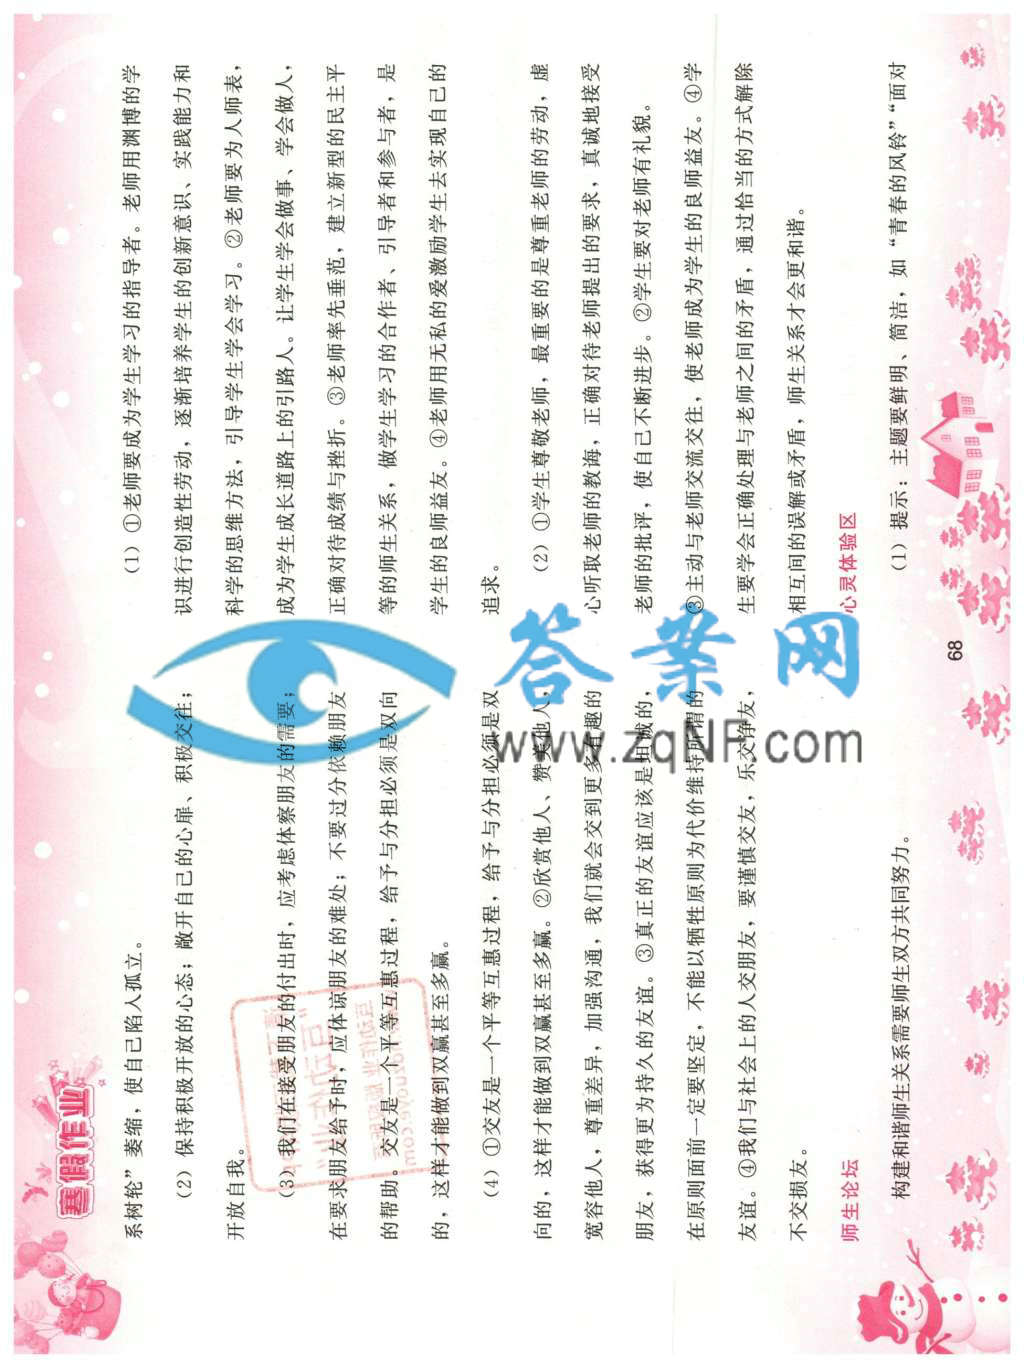 寒假作业
系树轮”萎缩，使自己陷人孤立。
（2）保持积极开放的心态；敞开自己的心扉、积极交往；
开放自我。
（3）我们在接受朋友的付出时，应考虑体察朋友的需要；
在要求朋友给予时，应体谅朋友的难处；不要过分依赖朋友
的帮助。交友是一个平等互惠过程，给予与分担必须是双向
的，这样才能做到双赢甚至多赢。
（4）①交友是一个平等互惠过程，给予与分担必须是双
向的，这样才能做到双赢甚至多赢。②欣赏他人、赞美他人，
宽容他人，尊重差异，加强沟通，我们就会交到更多有趣的
朋友，获得更为持久的友谊。③真正的友谊应该是坦诚的，
在原则面前一定要坚定，不能以牺牲原则为代价维持所谓的
友谊。④我们与社会上的人交朋友，要谨慎交友，乐交诤友，
不交损友。
师生论坛
构建和谐师生关系需要师生双方共同努力。
（1）①老师要成为学生学习的指导者。老师用渊博的学
识进行创造性劳动，逐渐培养学生的创新意识、实践能力和
科学的思维方法，引导学生学会学习。②老师要为人师表，
成为学生成长道路上的引路人。让学生学会做事、学会做人，
正确对待成绩与挫折。③老师率先垂范，建立新型的民主平
等的师生关系，做学生学习的合作者、引导者和参与者，是
学生的良师益友。④老师用无私的爱激励学生去实现自己的
追求。
（2）①学生尊敬老师，最重要的是尊重老师的劳动，虚
心听取老师的教诲，正确对待老师提出的要求，真诚地接受
老师的批评，使自己不断进步。②学生要对老师有礼貌。
③主动与老师交流交往，使老师成为学生的良师益友。④学
生要学会正确处理与老师之间的矛盾，通过恰当的方式解除
相互间的误解或矛盾，师生关系才会更和谐。
心灵体验区
（1）提示：主题要鲜明、简洁，如“青春的风铃”“面对
68
答案网
www.zqNF.com